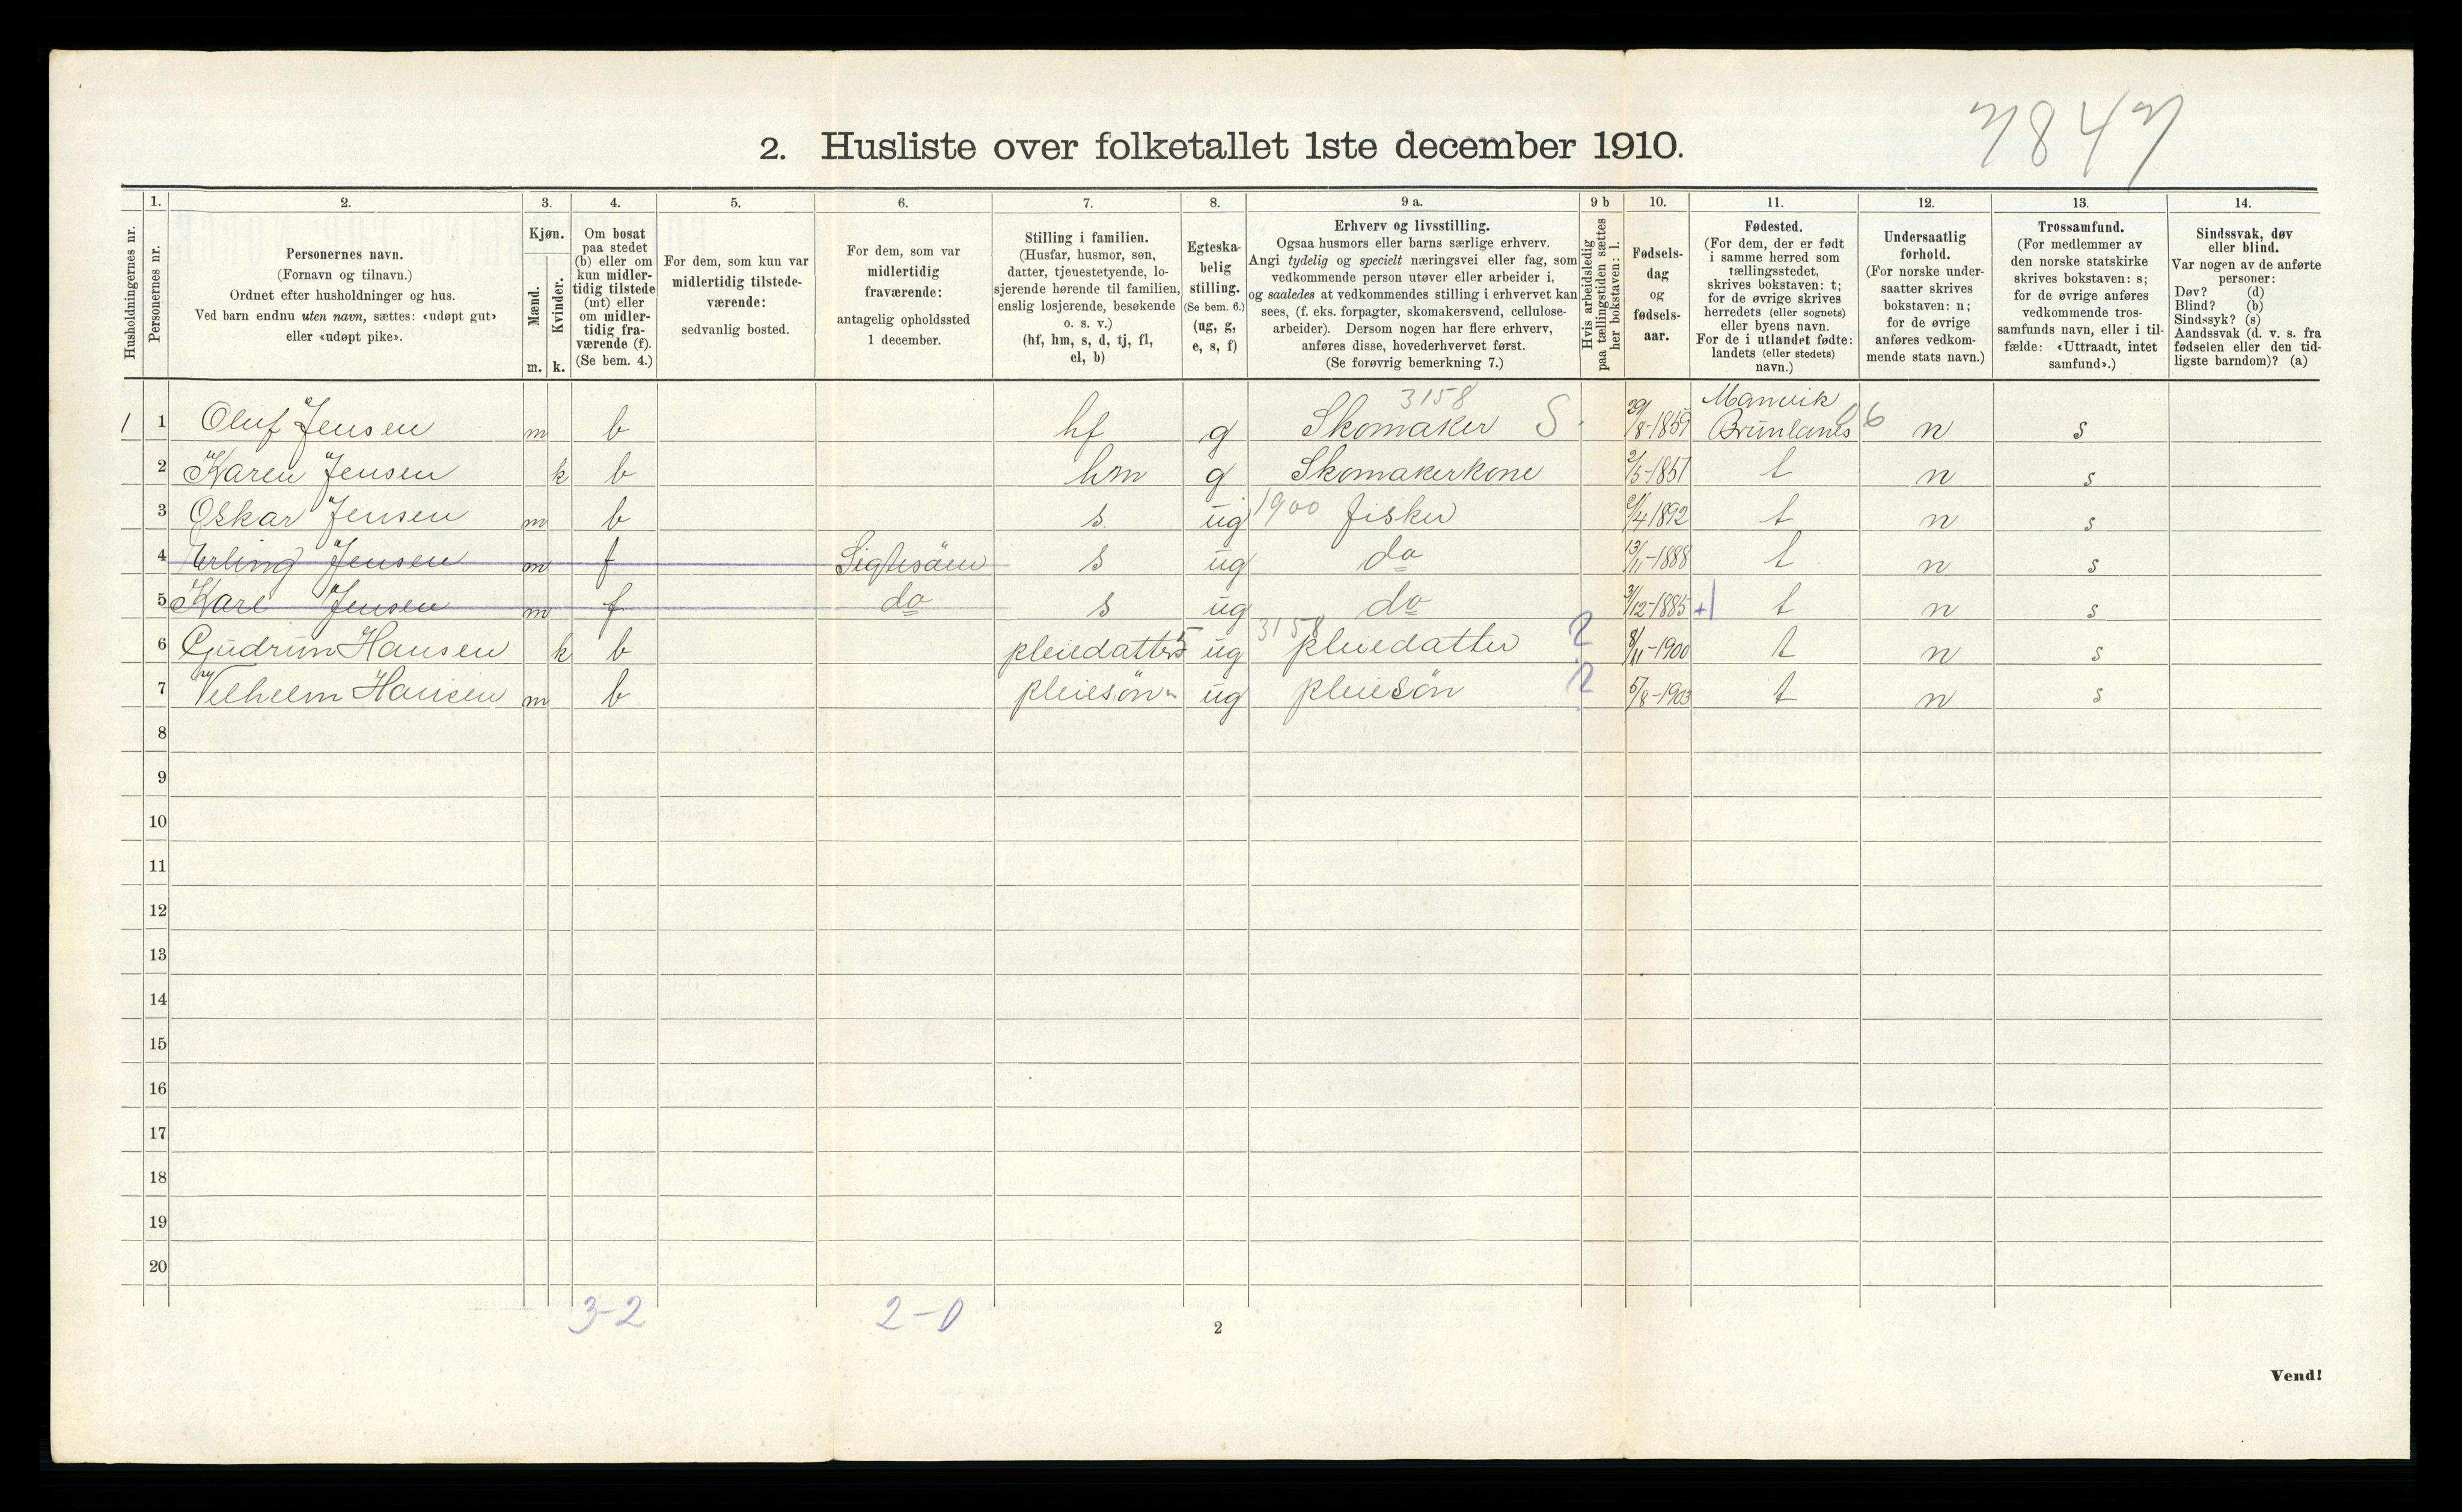 7847
2. Husliste over folketallet 1ste december 1910.
1. 2. 3. 4. 5. 6. 7. 8. 9 a. 9 b 10. 11. 12. 13. 14.
Husholdningernes nr.
Personernes nr.
Personernes navn.
(Fornavn og tilnavn.)
Ordnet efter husholdninger og hus.
Ved barn endnu uten navn, sættes: «udøpt gut»
eller «udøpt pike».
Kjøn.
Mænd.
Kvinder.
m. k.
Om bosat
paa stedet
(b) eller om
kun midler-
tidig tilstede
(mt) eller
om midler-
tidig fra-
værende (f).
(Se bem. 4.)
For dem, som kun var
midlertidig tilstede-
værende:
sedvanlig bosted.
For dem, som var
midlertidig
fraværende:
antagelig opholdssted
1 december.
Stilling i familien.
(Husfar, husmor, søn,
datter, tjenestetyende, lo-
sjerende hørende til familien,
enslig losjerende, besøkende
o. s. v.)
(hf, hm, s, d, tj, fl,
el, b)
Egteska-
belig
stilling.
(Se bem. 6.)
(ug, g,
e, s, f)
Erhverv og livsstilling.
Ogsaa husmors eller barns særlige erhverv.
Angi tydelig og specielt næringsvei eller fag, som
vedkommende person utøver eller arbeider i,
og saaledes at vedkommendes stilling i erhvervet kan
sees, (f. eks. forpagter, skomakersvend, cellulose-
arbeider). Dersom nogen har flere erhverv,
anføres disse, hovederhvervet først.
(Se forøvrig bemerkning 7.)
Hvis arbeidsledig
paa tællingstiden sættes
her bokstaven: l.
Fødsels-
dag
og
fødsels-
aar.
Fødested.
(For dem, der er født
i samme herred som
tællingsstedet,
skrives bokstaven: t;
for de øvrige skrives
herredets (eller sognets)
eller byens navn.
For de i utlandet fødte:
landets (eller stedets)
navn.)
Undersaatlig
forhold.
(For norske under-
saatter skrives
bokstaven: n;
for de øvrige
anføres vedkom-
mende stats navn.)
Trossamfund.
(For medlemmer av
den norske statskirke
skrives bokstaven: s;
for de øvrige anføres
vedkommende tros-
samfunds navn, eller i til-
fælde: «Uttraadt, intet
samfund».)
Sindssvak, døv
eller blind.
Var nogen av de anførte
personer:
Døv? (d)
Blind? (b)
Sindssyk? (s)
Aandssvak (d. v. s. fra
fødselen eller den tid-
ligste barndom)? (a)
3158 Manvik
1 1 Oluf Jensen m b hf g Skomaker S 29/8-1859 Brunlanes 6 n s
2 Karen Jensen k b hm g Skomakerkone 2/5-1851 t n s
3 Oskar Jensen m b s ug 1900 fisker 21/4 1892 t n s
4 Erling Jensen m f s ug do 13/11-1888 t n s
5 Karl Jensen m f do s ug do 31/12-1885 +1 t n s
3158
6 Gudrun Hansen k b pleiedatter ug pleiedatter 2 8/11-1900 t n s
7 Vilhelm Hansen m b pleiesön ug pleiesön 2 5/8-1903 t n s
8
9
10
11
12
13
14
15
16
17
18
19
20
3-2 2-0
2
Vend!